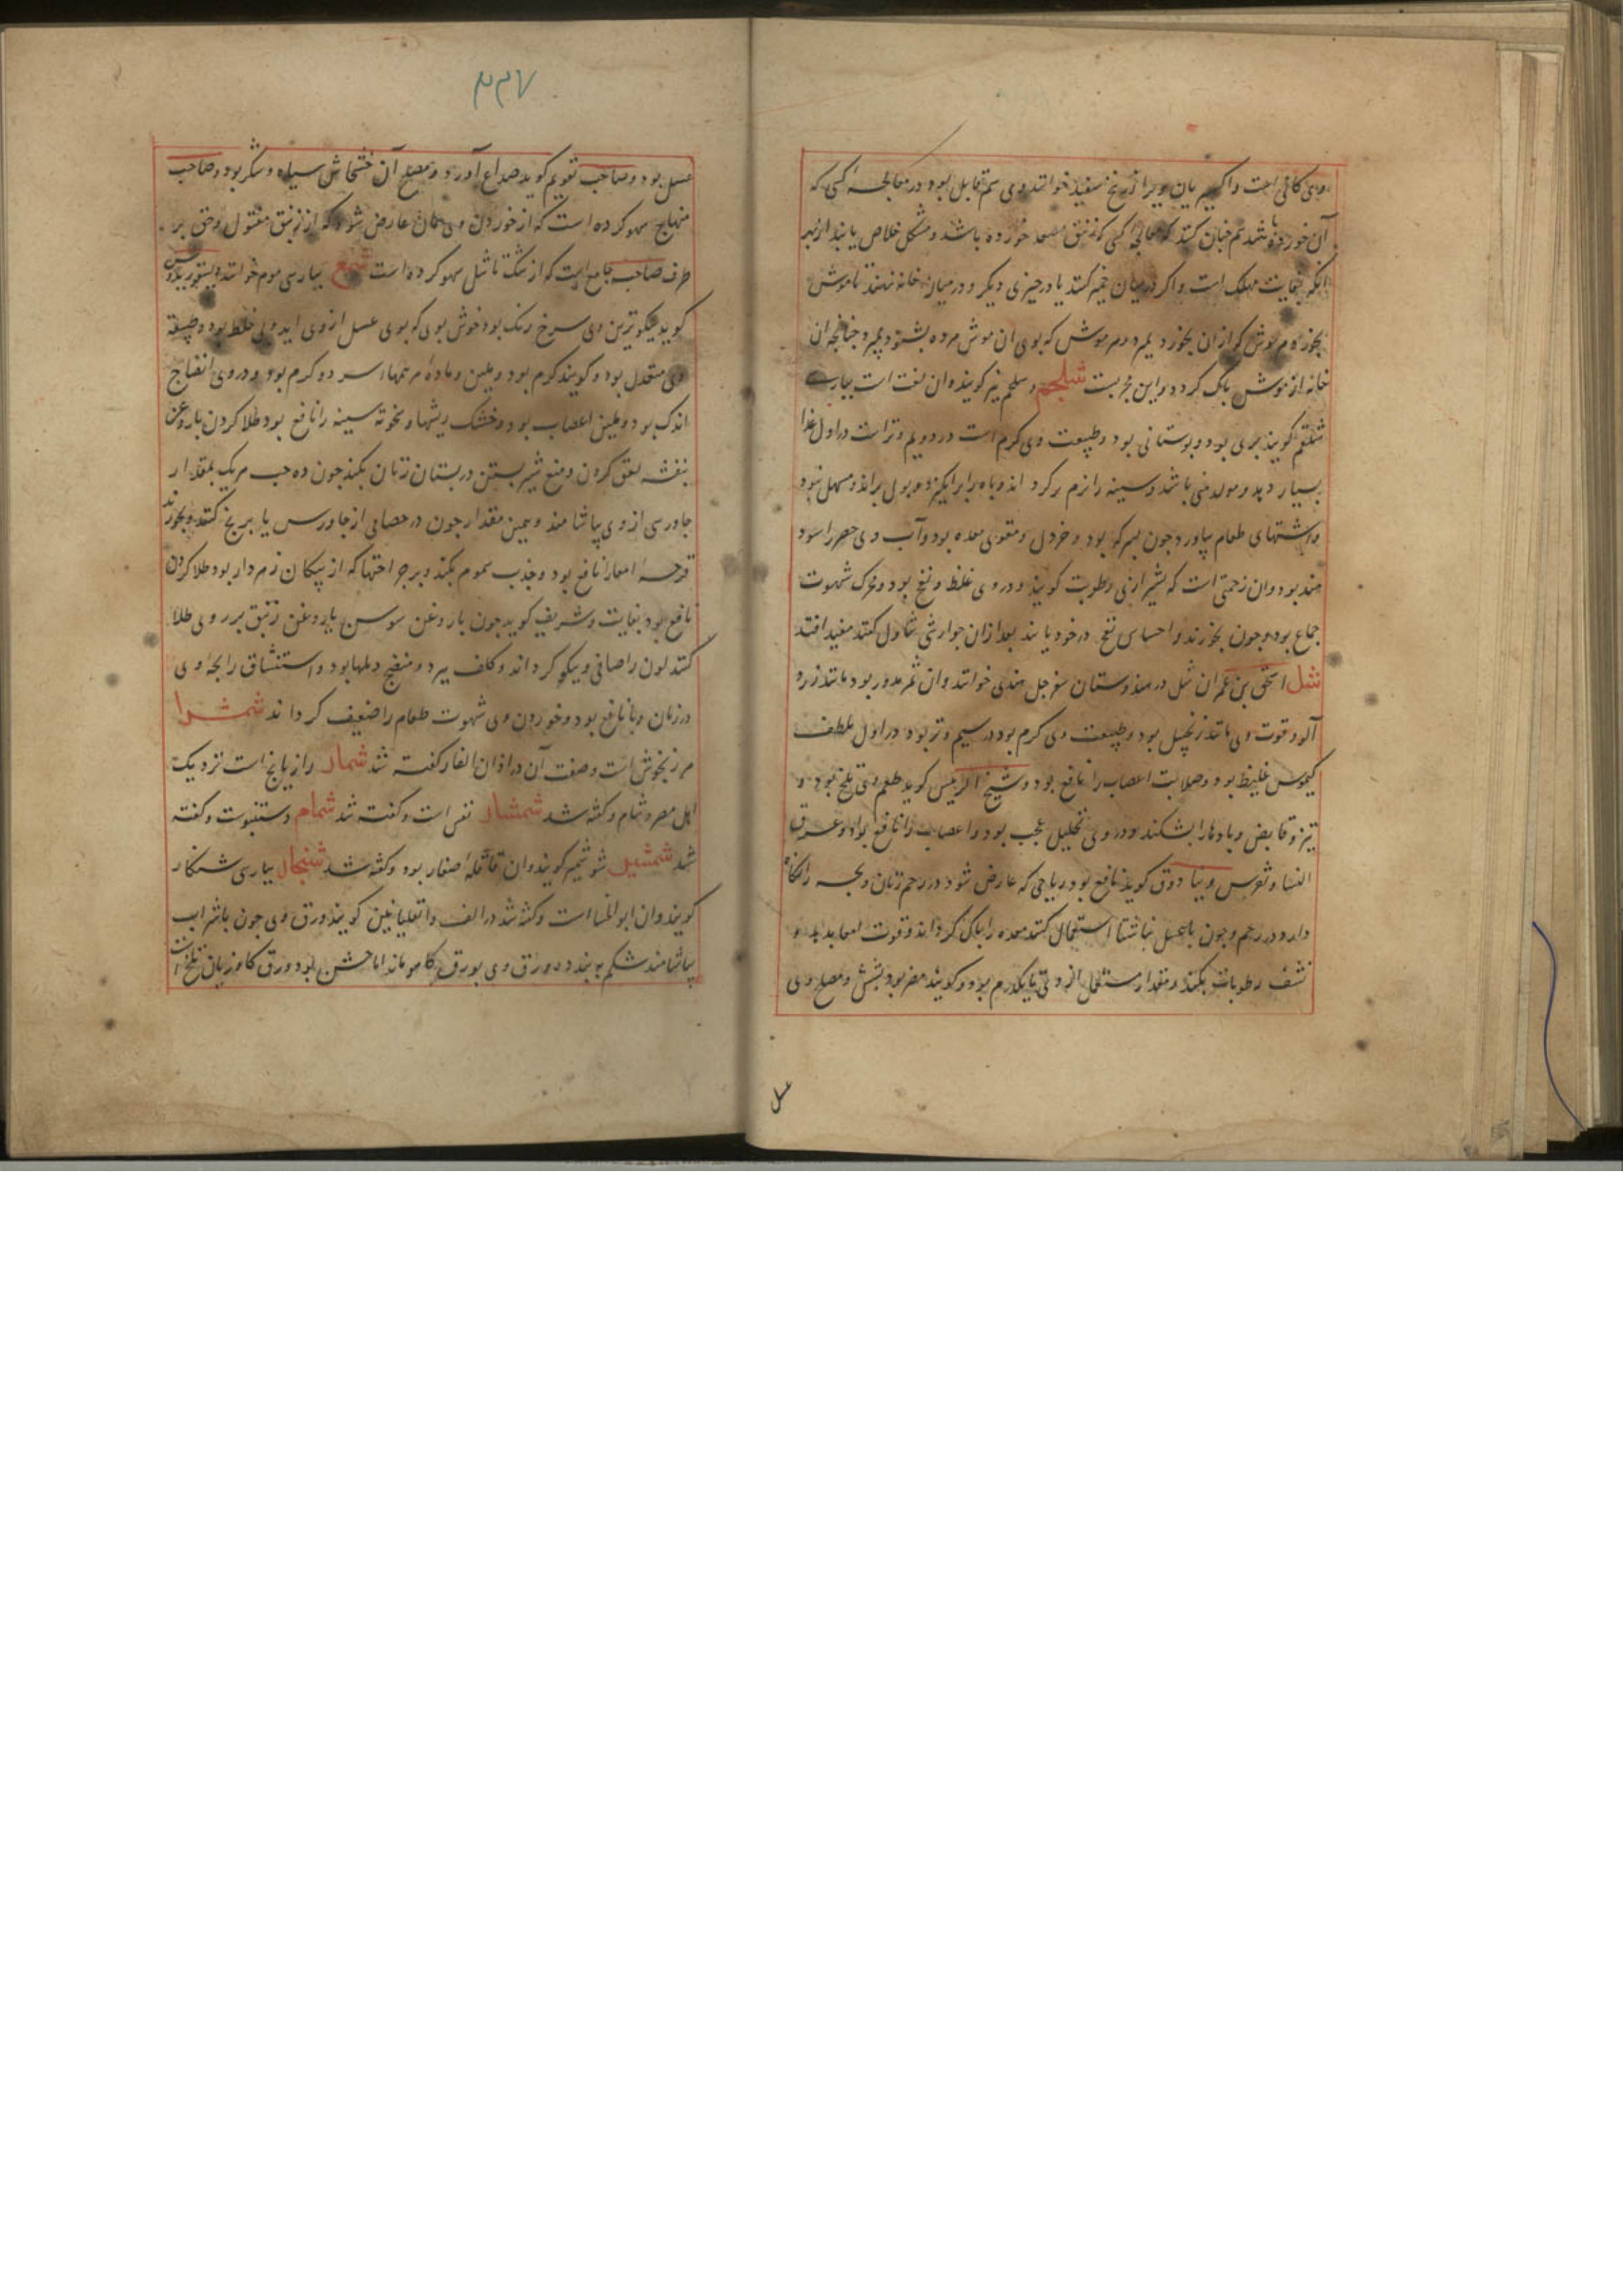 وی کافی است و اکسیریان ویرا زرنیخ سفید خوانند وی سم قاتل بود در معالجه کسی که
آن خورده باشد هم چنان کنند که معالجه کسی که زیبق مصعد خورده باشد و مشکل خلاص یابند از بهر
آنکه بغایت مهلک است و اکر در میان خمیر کنند یا در چیزی دیکر و در میان خانه نهند تا موش
بخورد هر موش که از ان بخورد بمیرد و هر موش که بوی ان موش مرده بشنود بمیرد چنانچه ان
خانه از موش پاک کردد و این مجربست شلجم و سلجم نیز کویند و ان لفت است بپارسی
شلغم کویند بری بود و بوستانی بود و طبیعت وی کرم است در دویم و تر است در اول غذا
بسیار دهد و مولد منی باشد و سینه را نرم کرداند و باه را برانکیزد و بول براند و مسهل نبود
و اشتهای طعام بیاورد جون بسرکه بود و خردل و مقوی معده بود و آب وی حصر را سود
مند بود و ان زحمتی است که بشیرازی رطوبت کویند و در وی غلظ و نفخ بود و محرک شهوت
جماع بود و جون بخورند و احساس نفخ در خود یابند بعد از ان جوارشی تناول کنند مفید افتد
شل اسحق بن عمران شل در هندوستان سفرجل هندی خوانند و ان ثمر مدور بود مانند زرد
آلو و قوت وی مانند زنجبیل بود و طبیعت وی کرم بود در سیم و تر بود در اول ملطف
کیموس غلیظ بود و صلابت اعصاب را نافع بود و شیخ الرئیس کوید طعم وی تلخ بود و
تیز و قابض و بادها را بشکند و در وی تحلیل عجب بود و اعصاب را نافع بود و عرق
النسا و نقرس و بیادوق کوید نافع بود ریاحی که عارض شود در رحم زنان و بچه را نکاه
دارد در رحم و جون با عسل بناشتا استعمال کنند معده را پاک کرداند و قوت امعا بدهد و
نشف رطوبات بکند و مقدار مستعمل از وی تا یکدرم بود و کویند مضر بود بشش و مصلح وی
عسل
۲۲۷
عسل بود و صاحب تقویم کوید صداع آورد و مصلح آن خشخاش سیاه و شکر بود و صاحب
منهاج سهو کرده است که از خوردن وی همان عارض شود که از زیبق مقتول و حق بر
طرف صاحب جامع است که از شک تا شل سهو کرده است شمع بپارسی موم خوانند و دیسقوریدوس
کوید نیکوترین وی سرخ رنک بود خوش بوی که بوی عسل از وی اید وبی خلط بود و طبیعت
وی معتدل بود و کویند کرم بود و ملین و ماده مرهمهاء سرد و کرم بود و در وی انضاج
اندک بود و ملین اعصاب بود و خشک ریشها و خشونة سینه را نافع بود طلا کردن با روغن
بنفشه لعق کردن و منع شیر بستن در پستان زنان بکند جون ده حب هر یک بمقدار
جاورسی از وی بیاشامند و همین مقدار جون در حصایی از جاورس یا برنج کنند و بخورند
قرحه امعا را نافع بود و جذب سموم بکند و بر جراحتها که از پیکان زهردار بود طلا کردن
نافع بود بغایت و شریف کوید جون با روغن سوسن یا روغن زنبق بر روی طلا
کنند لون را صافی و نیکو کرداند و کلف ببرد و منضج دملها بود و استنشاق رایحه وی
در زمان وبا نافع بود و خوردن وی شهوت طعام را ضعیف کرداند شمشرا
مرزنجوش است و صفت آن در اذان الفار کفته شد شمار رازیانج است نزدیک
اهل مصر و شام و کفته شد شمشار بقس است و کفته شد شمام دستنبوست و کفته
شد شمشیر شوشمیر کویند و ان قاقله صغار بود و کفته شد شنجار بپارسی شنکار
کویند و ان ابو خلسا است و کفته شد در الف و انقلیا نیین کویند ورق وی جون باشراب
بیاشامند شکم به بندد و ورق وی بورق کاهو ماند اما خشن بود و ورق کاوزبان تلخ است